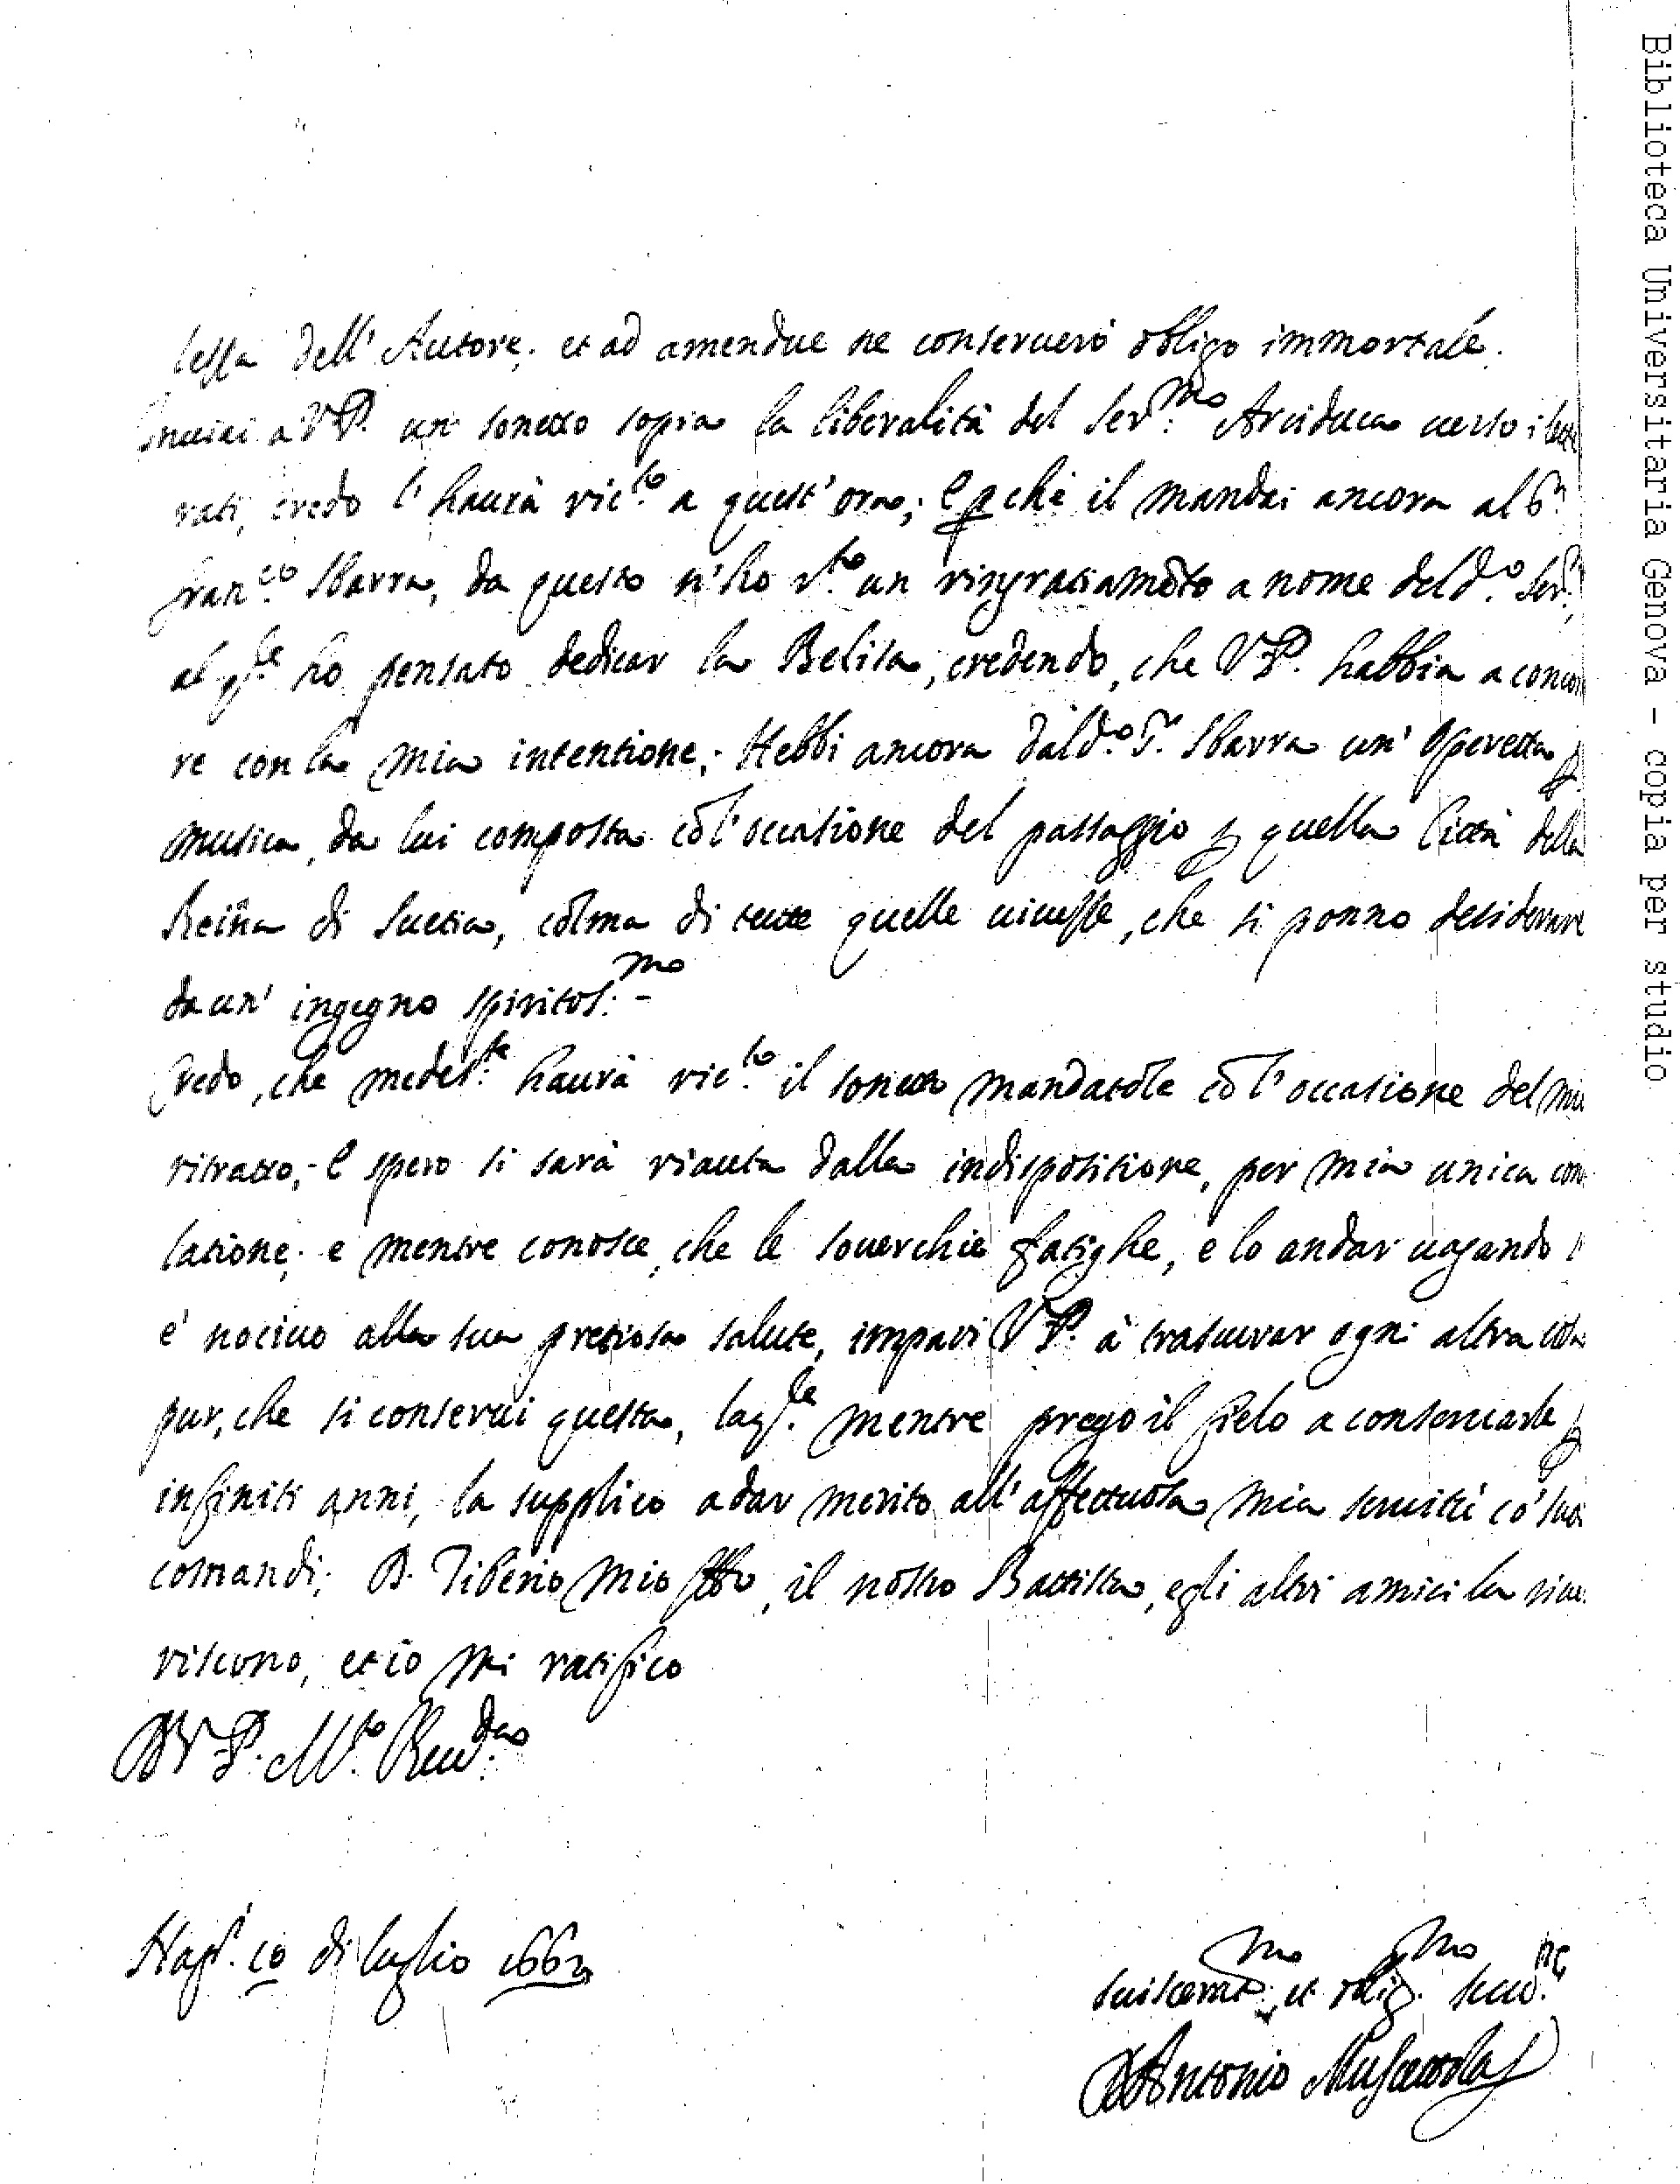 tessa dell'Autore; et ad amendue ne conseruerò obligo immortale.
Inuiai a V.P. un sonetto sopra la liberalità del Ser:mo Arciduca uerso i lette
rati, credo l'haurà ric:to a quest'ora; e pchè il mandai ancora al Sr.
Fran:co Sbarra, da questo n'ho r:to un ringratiamẽto a nome del d:o Ser:
al q:le ho pensato dedicar la Belisa, credendo, che V.P. habbia a concor
re con la mia intentione; Hebbi ancora dal d:o Sr. Sbarra un'Operetta p
musica, da lui composta cõ l'occasione del passaggio p quella Città della
Reina di Suetia, colma di tutte quelle uiuezze, che si ponno desiderare
da un'ingegno spiritos:mo
Credo, che medes:te haurà ric:to il sonetto mandatole cõ l'occasione del mio
ritratto; e spero si sarà riauuta dalla indispositione, per mia unica conso
latione; e mentre conosce, che le souerchie fatighe, e lo andar uagando
è nociuo alla sua pretiosa salute, impari V.P. à trascurar ogni altra cosa
pur, che si conserui questa, la q:le mentre prego il Cielo a conseruarla p
infiniti anni, la supplico a dar merito all'affettuosa mia seruitù co' suoi
comandi; D. Tiberio mio fr̃o, il nostro Battista, e gli altri amici la riue
riscono, et io mi ratifico
D V.P. M:to Reu:da
Nap. 10 di luglio 1662
Suiscerat:mo et oblig:mo seru:re
D Antonio Muscettola
Biblioteca Universitaria Genova - copia per studio